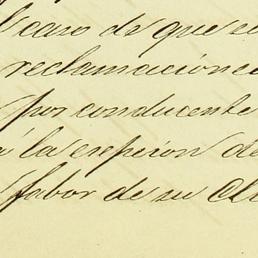 caso de que se
reclamacione
por conducente
á la espicion de
fabor de su